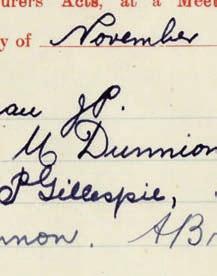 urers' Acts, at a Meet
y of November
au J.P.
M Dunnion
P Gillespie,
nnon. A B